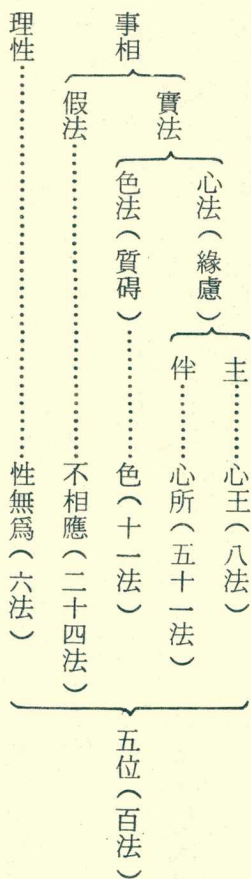 事相
實法
心法（緣慮）
主………心王（八法）
伴………心所（五十一法）
色法（質碍）…………色（十一法）
假法……………………不相應（二十四法）
理性………………………………性無爲（六法）
五位（百法）